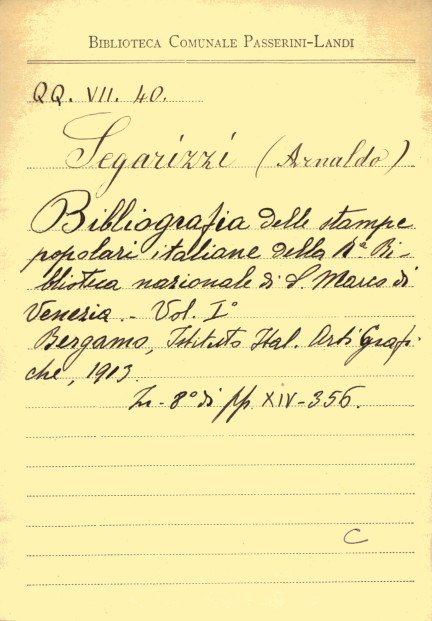 BIBLIOTECA COMUNALE PASSERINI-LANDI
QQ. VII. 40.
Segarizzi (Arnaldo)
Bibliografia delle stampe
popolari italiane della Rª Bi-
blioteca nazionale di S. Marco di
Venezia. - Vol. Iº
Bergamo, Istituto Ital. Arti Grafi-
che, 1913.
In-8º di pp. XIV-356.
C